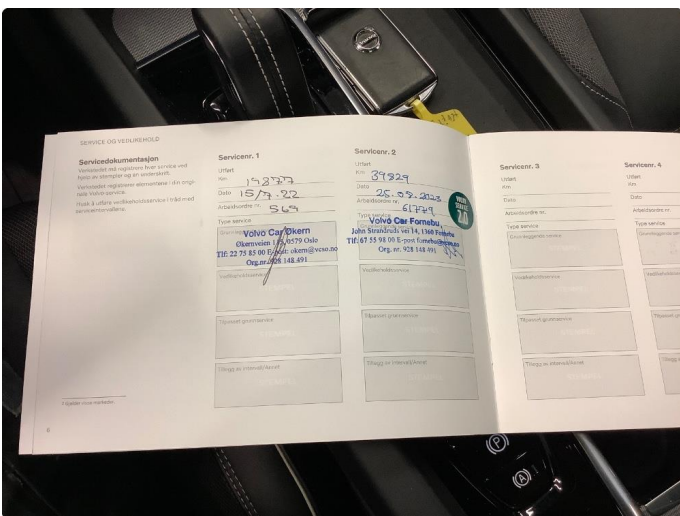 SERVICE OG VEDLIKEHOLD
Servicedokumentasjon
Verkstedet må registrere hver service ved
hjelp av stempler og en underskrift.
Verkstedet registrerer elementene i din
Volvo-service.
Husk å utføre vedlikeholdsservice i tråd med
serviceintervallene.
Servicenr. 1
Utført
Km 19877
Dato 15/7-22
Arbeidsordre nr. 569
Type service
Volvo Car Økern
Økernveien 0579 Oslo
Tlf: 22 75 85 00 E-post: okern@vcso.no
Org.nr. 928 148 491
Vedlikeholdsservice
Tilpasset grunnservice
Tillegg av intervall/Annet
Servicenr. 2
Utført
Km 39829
Dato 25.05.2023
Arbeidsordre nr. 61779
Type service
VOLVO
SERVICE
2.0
Volvo Car Fornebu
John Strandruds vei 14, 1360 Fornebu
Tlf: 67 55 98 00 E-post
Org. nr. 928 148 491
Vedlikeholdsservice
Tilpasset grunnservice
Tillegg av intervall/Annet
Servicenr. 3
Utført
Km
Dato
Arbeidsordre nr.
Type service
Grunnleggende service
Vedlikeholdsservice
Tilpasset grunnservice
Tillegg av intervall/Annet
Servicenr. 4
Utført
Km
Dato
Arbeidsordre nr.
Type service
6
(P)
(A)